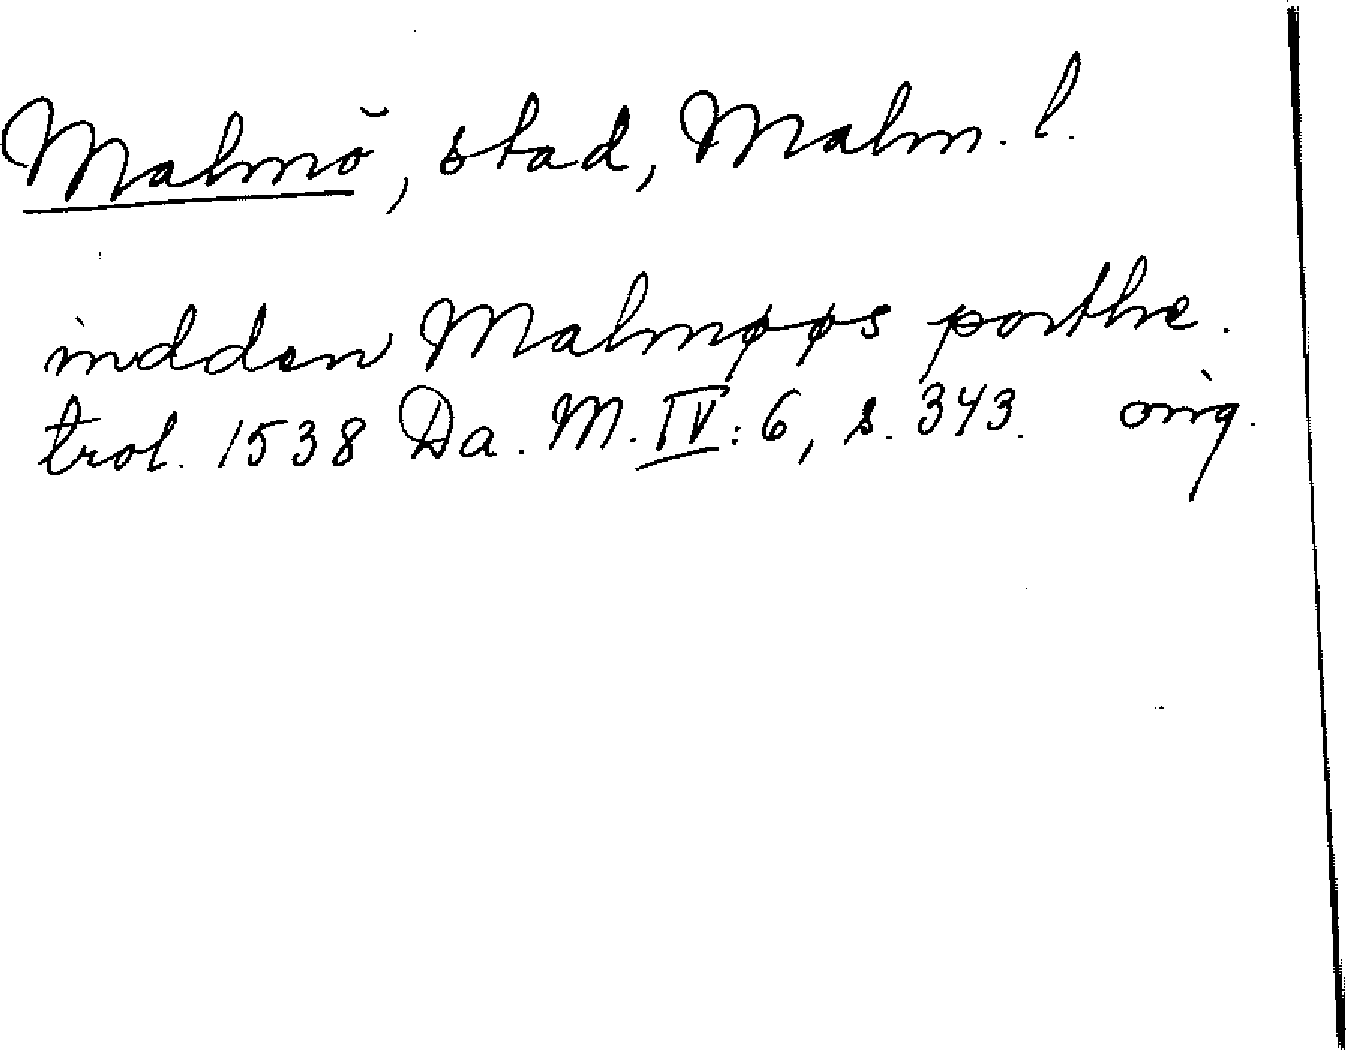 Malmö, stad, Malm. l.
indden Malmøøs porthe.
trol. 1538 Da. M. IV: 6, s. 343. orig.